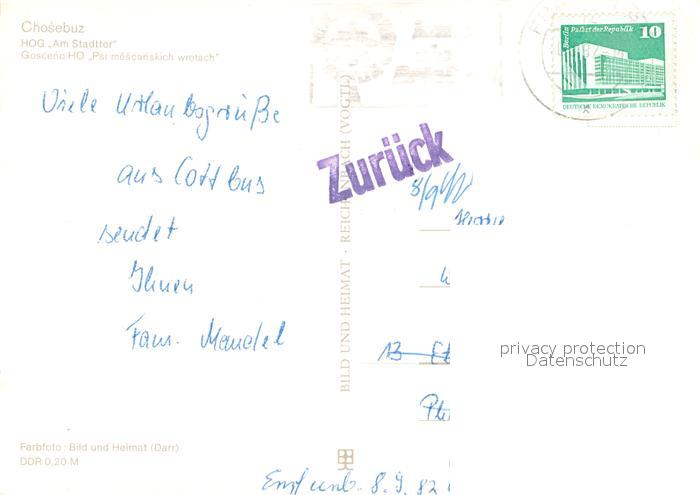 Chośebuz
HOG „Am Stadttor"
Gosćeńc HO „Pśi měšćańskich wrotach"
Viele Urlaubsgrüße
aus Cottbus
sendet
Ihnen
Fam. Mandel
Farbfoto: Bild und Heimat (Darr)
DDR 0,20 M
BILD UND HEIMAT · REICHENBACH (VOGTL)
Zurück
8/9
13
8.9.82
Berlin Palast der Republik 10
DEUTSCHE DEMOKRATISCHE REPUBLIK
privacy protection
Datenschutz